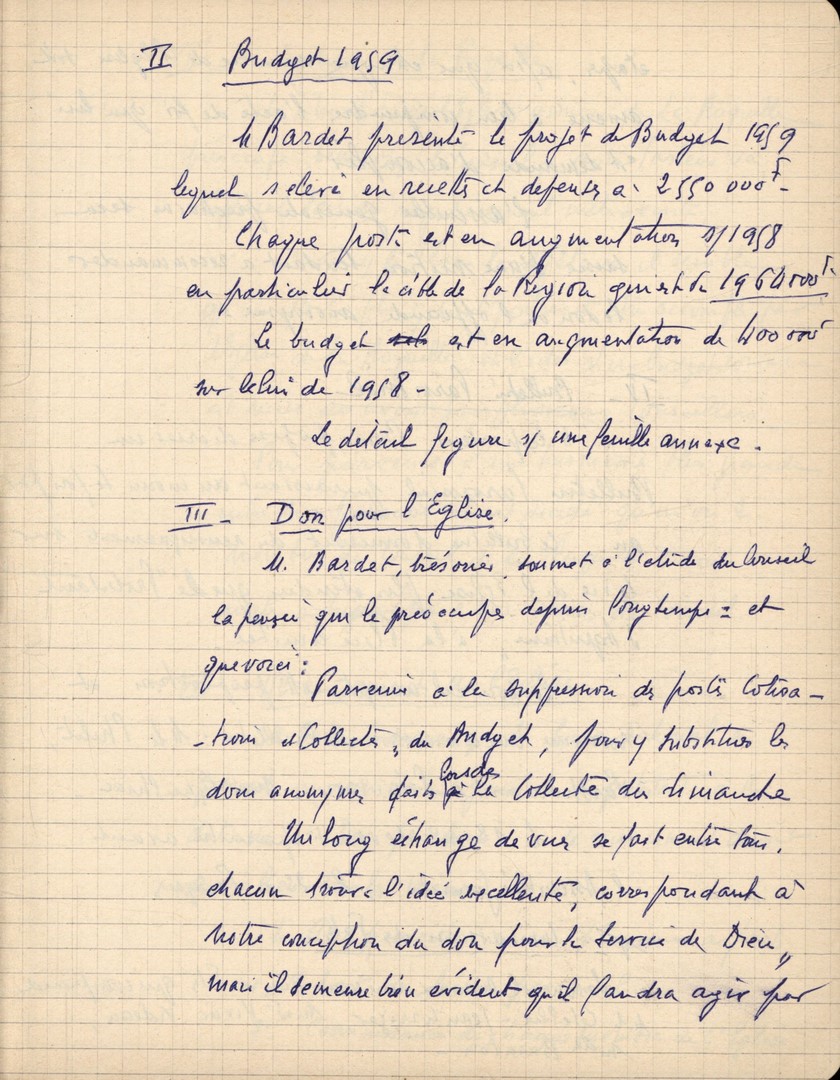 II Budget 1959
M Bardet présente le projet de Budget 1959
lequel s'élève en recettes et dépenses à 2550 000 F -
Chaque poste est en augmentation s/1958
en particulier la cible de la Région qui est de 1964000 F.
Le budget est en augmentation de 400 000
sur celui de 1958 -
Le détail figure s/ une feuille annexe.
III - Don pour l'Eglise.
M. Bardet, trésorier, soumet à l'étude du Conseil
la pensée qui le préoccupe depuis longtemps et
que voici :
Parvenir à la suppression de postes Cotisa-
-tions et Collectes, du Budget, pour y substituer les
dons anonymes faits lors de la Collecte du dimanche
Un long échange de vues se fait entre tous,
chacun trouve l'idée excellente, correspondant à
notre conception du don pour le Service de Dieu,
mais il demeure bien évident qu'il faudra agir par